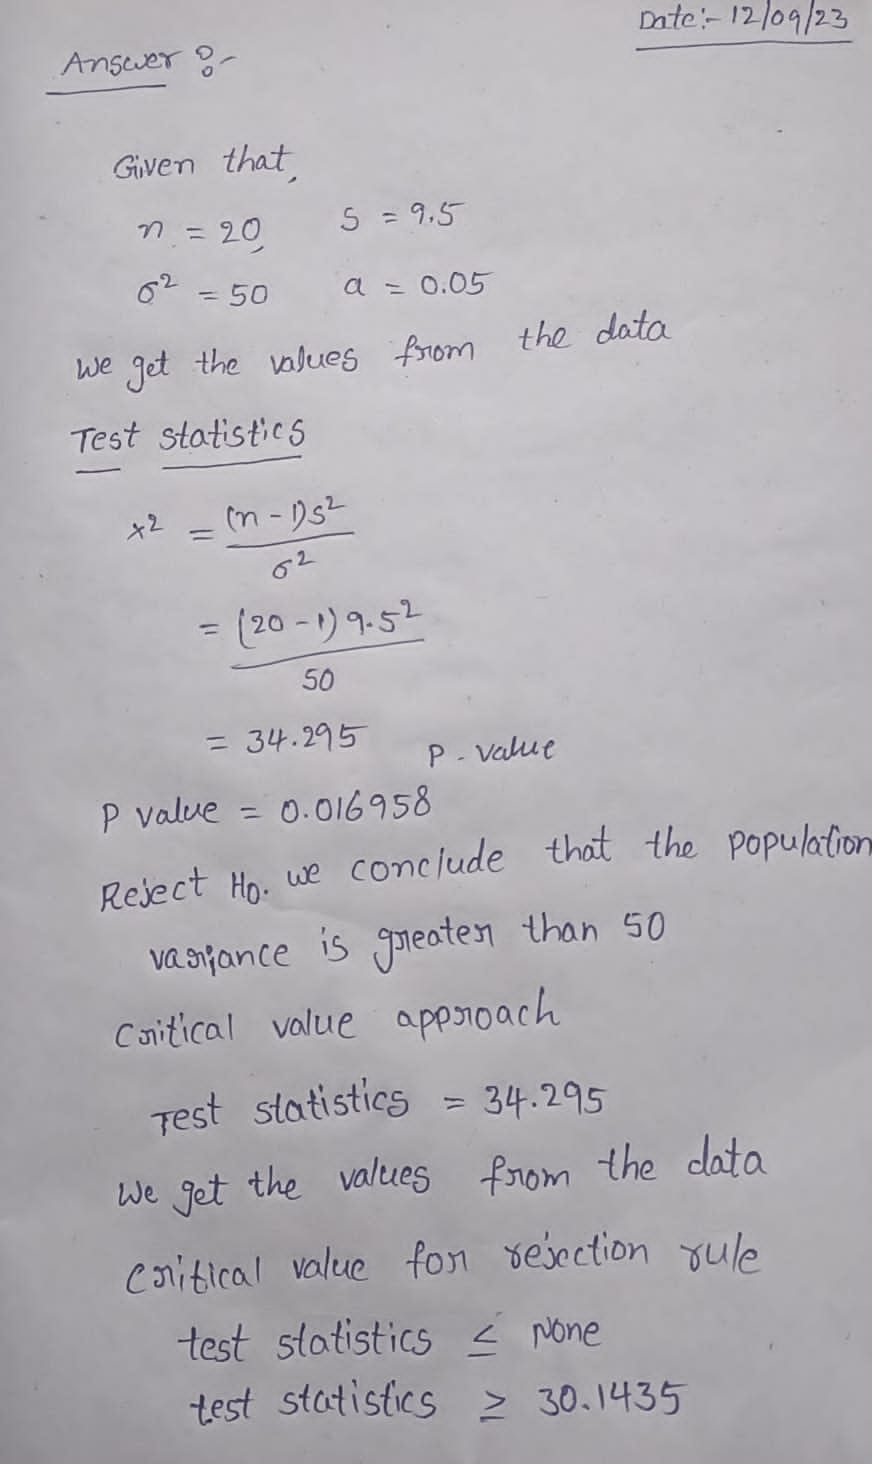 Date:- 12/09/23
Answer :-
Given that,
n = 20, S = 9.5
σ² = 50 a = 0.05
We get the values from the data
Test statistics
x² = (n - 1)s²
σ²
= (20 - 1) 9.5²
50
= 34.295 P - value
P value = 0.016958
Reject H0. we conclude that the population
variance is greater than 50
Critical value approach
Test statistics = 34.295
We get the values from the data
Critical value for rejection rule
test statistics ≤ None
test statistics ≥ 30.1435